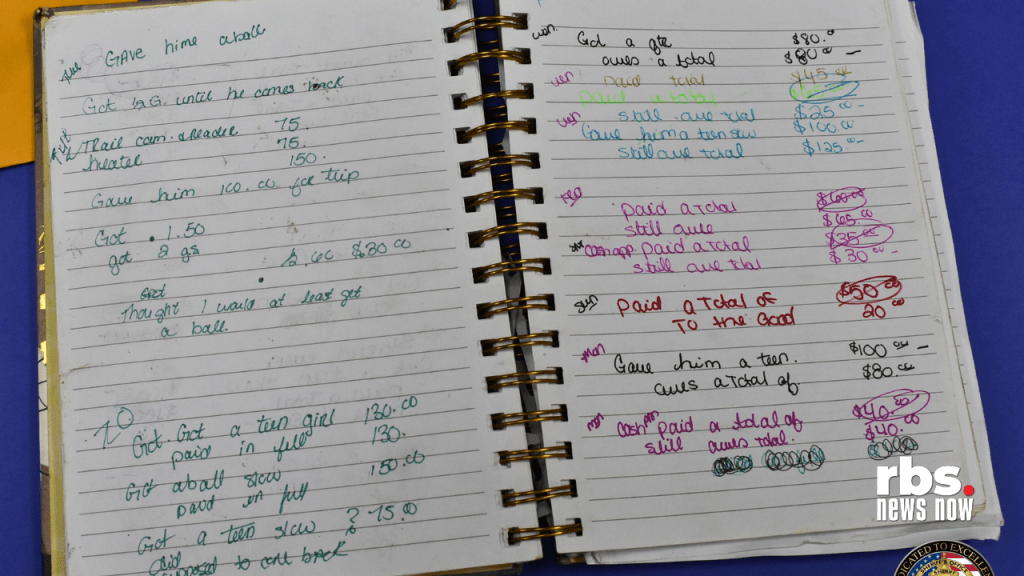 GAVE hime aball
Got ½ G. until he comes back
Trail cam. 75.
heater 75.
150.
Gave him 100.00 for trip
Got . 1.50
got 2 gs
$30 00
Got
thought I would at least get
a ball.
20
Got. Got a teen girl 130.00
paid in full 130.
Got aball slow 150.00
paid in full
Got a teen slow ? 75.00
supposed to call back
Got a $80.0
owes a total $80 00 –
paid total $45.00
paid a total
still owe total $25 00 –
Gave him a teen $100.00
still owe total $125 00 –
paid a total $60.00
still owe $65.00
Cashapp paid a total $35 00
still owe total $30 00 –
sun paid a total of $50 00
TO the Good 20 00
mon Gave him a teen. $100 00 –
owes a total of $80.00
mon Cash paid a total of $40.00
still owes total. $40.00
rbs.
news now
DICATED TO EXCELLE